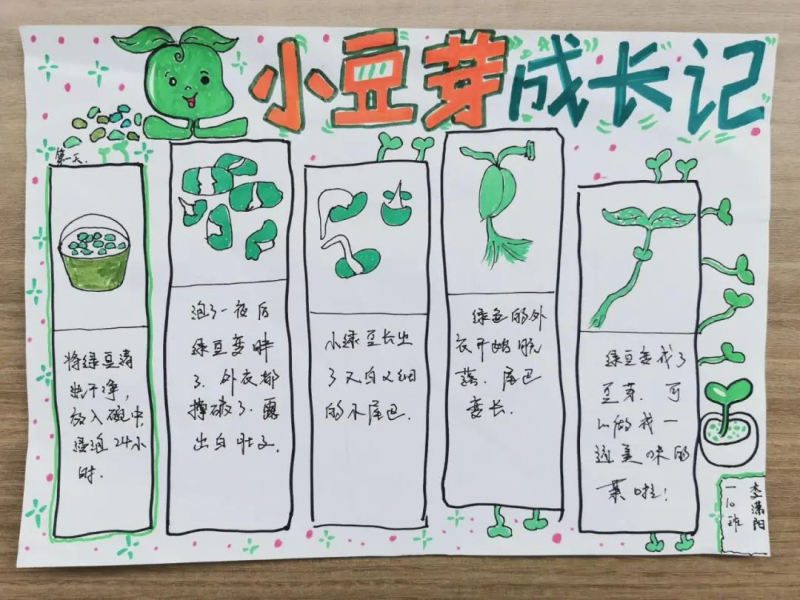 小豆芽成长记
第一天.
将绿豆清
洗干净,
放入碗中
浸泡24小
时.
泡了一夜后
绿豆变胖
了.外衣都
撑破了.露
出白肚子.
小绿豆长出
了又白又细
的小尾巴.
绿色的外
衣开始脱
落.尾巴
变长.
绿豆变成了
豆芽.可
以做成一
道美味的
菜啦!
一10班